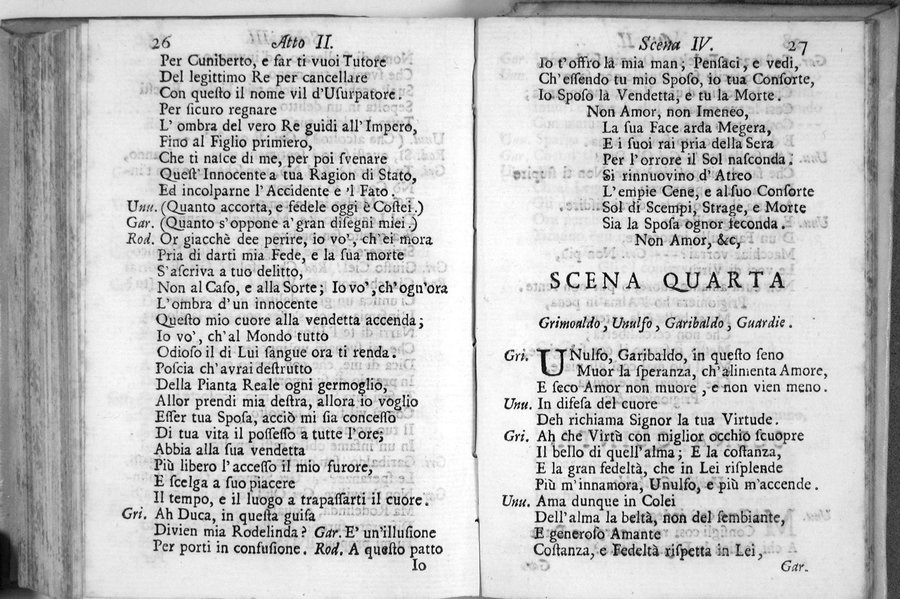 26 Atto II.
Per Cuniberto, e far ti vuoi Tutore
Del legittimo Re per cancellare
Con questo il nome vil d'Usurpatore.
Per sicuro regnare
L' ombra del vero Re guidi all' Impero,
Fino al Figlio primiero,
Che ti nasce di me, per poi svenare
Quest' Innocente a tua Ragion di Stato,
Ed incolparne l'Accidente e 'l Fato.
Unu. (Quanto accorta, e fedele oggi è Costei.)
Gar. (Quanto s'oppone a' gran disegni miei.)
Rod. Or giacchè dee perire, io vo', ch'ei mora
Pria di darti mia Fede, e la sua morte
S'ascriva a tuo delitto,
Non al Caso, e alla Sorte; Io vo', ch'ogn'ora
L'ombra d'un innocente
Questo mio cuore alla vendetta accenda;
Io vo', ch'al Mondo tutto
Odioso il di Lui sangue ora ti renda.
Poscia ch'avrai destrutto
Della Pianta Reale ogni germoglio,
Allor prendi mia destra, allora io voglio
Esser tua Sposa, acciò mi sia concesso
Di tua vita il possesso a tutte l'ore;
Abbia alla sua vendetta
Più libero l'accesso il mio furore,
E scelga a suo piacere
Il tempo, e il luogo a trapassarti il cuore.
Gri. Ah Duca, in questa guisa
Divien mia Rodelinda? Gar. E' un'illusione
Per porti in confusione. Rod. A questo patto
Io
Scena IV. 27
Io t'offro la mia man; Pensaci, e vedi,
Ch'essendo tu mio Sposo, io tua Consorte,
Io Sposo la Vendetta, e tu la Morte.
Non Amor, non Imeneo,
La sua Face arda Megera,
E i suoi rai pria della Sera
Per l'orrore il Sol nasconda.
Si rinnuovino d' Atreo
L'empie Cene, e al suo Consorte
Sol di Scempi, Strage, e Morte
Sia la Sposa ognor feconda.
Non Amor, &c,
SCENA QUARTA
Grimoaldo, Unulfo, Garibaldo, Guardie.
Gri. UNulfo, Garibaldo, in questo seno
Muor la speranza, ch'alimenta Amore,
E seco Amor non muore, e non vien meno.
Unu. In difesa del cuore
Deh richiama Signor la tua Virtude.
Gri. Ah che Virtù con miglior occhio scuopre
Il bello di quell'alma; E la costanza,
E la gran fedeltà, che in Lei risplende
Più m'innamora, Unulfo, e più m'accende.
Unu. Ama dunque in Colei
Dell'alma la beltà, non del sembiante,
E generoso Amante
Costanza, e Fedeltà rispetta in Lei,
Gar.